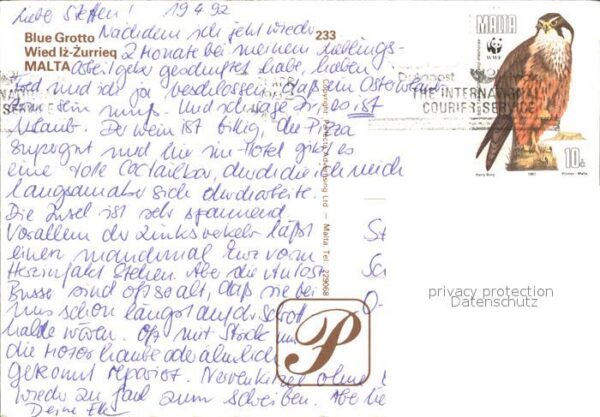 Liebe Steffen! 19.4.92
Blue Grotto 233
Wied Iż-Żurrieq
MALTA
Nachdem ich jetzt wieder
2 Monate bei meinem Lieblings-
Arbeitgeber geschuftet habe, haben
und ich ja beschlossen, daß ein Osterurlaub
sein muß. Und ich sage Dir, das ist
Urlaub. Der Wein ist billig, die Pizza
supergut und hier im Hotel gibt es
eine tolle Cocktailbar, durch die ich mich
langsam aber sicher durcharbeite.
Die Insel ist sehr spannend.
Vorallem der Linksverkehr läßt
einen manchmal kurz vorm
Herzinfarkt stehen. Aber die Autos
Busse sind oft so alt, daß sie bei
uns schon längst auf der Schrott
halde wären. Oft mit Strick um
die Motorhaube oder ähnlich
gekonnt repariert. Nervenkitzel ohne
wieder zu faul zum Schreiben. Aber
Deine
MALTA
WWF
THE INTERNATIONAL
COURIER SERVICE
SERVICE
10c
1991
Printex - Malta
Advertising Ltd — Malta. Tel: 229068
St
O-
privacy protection
Datenschutz
P